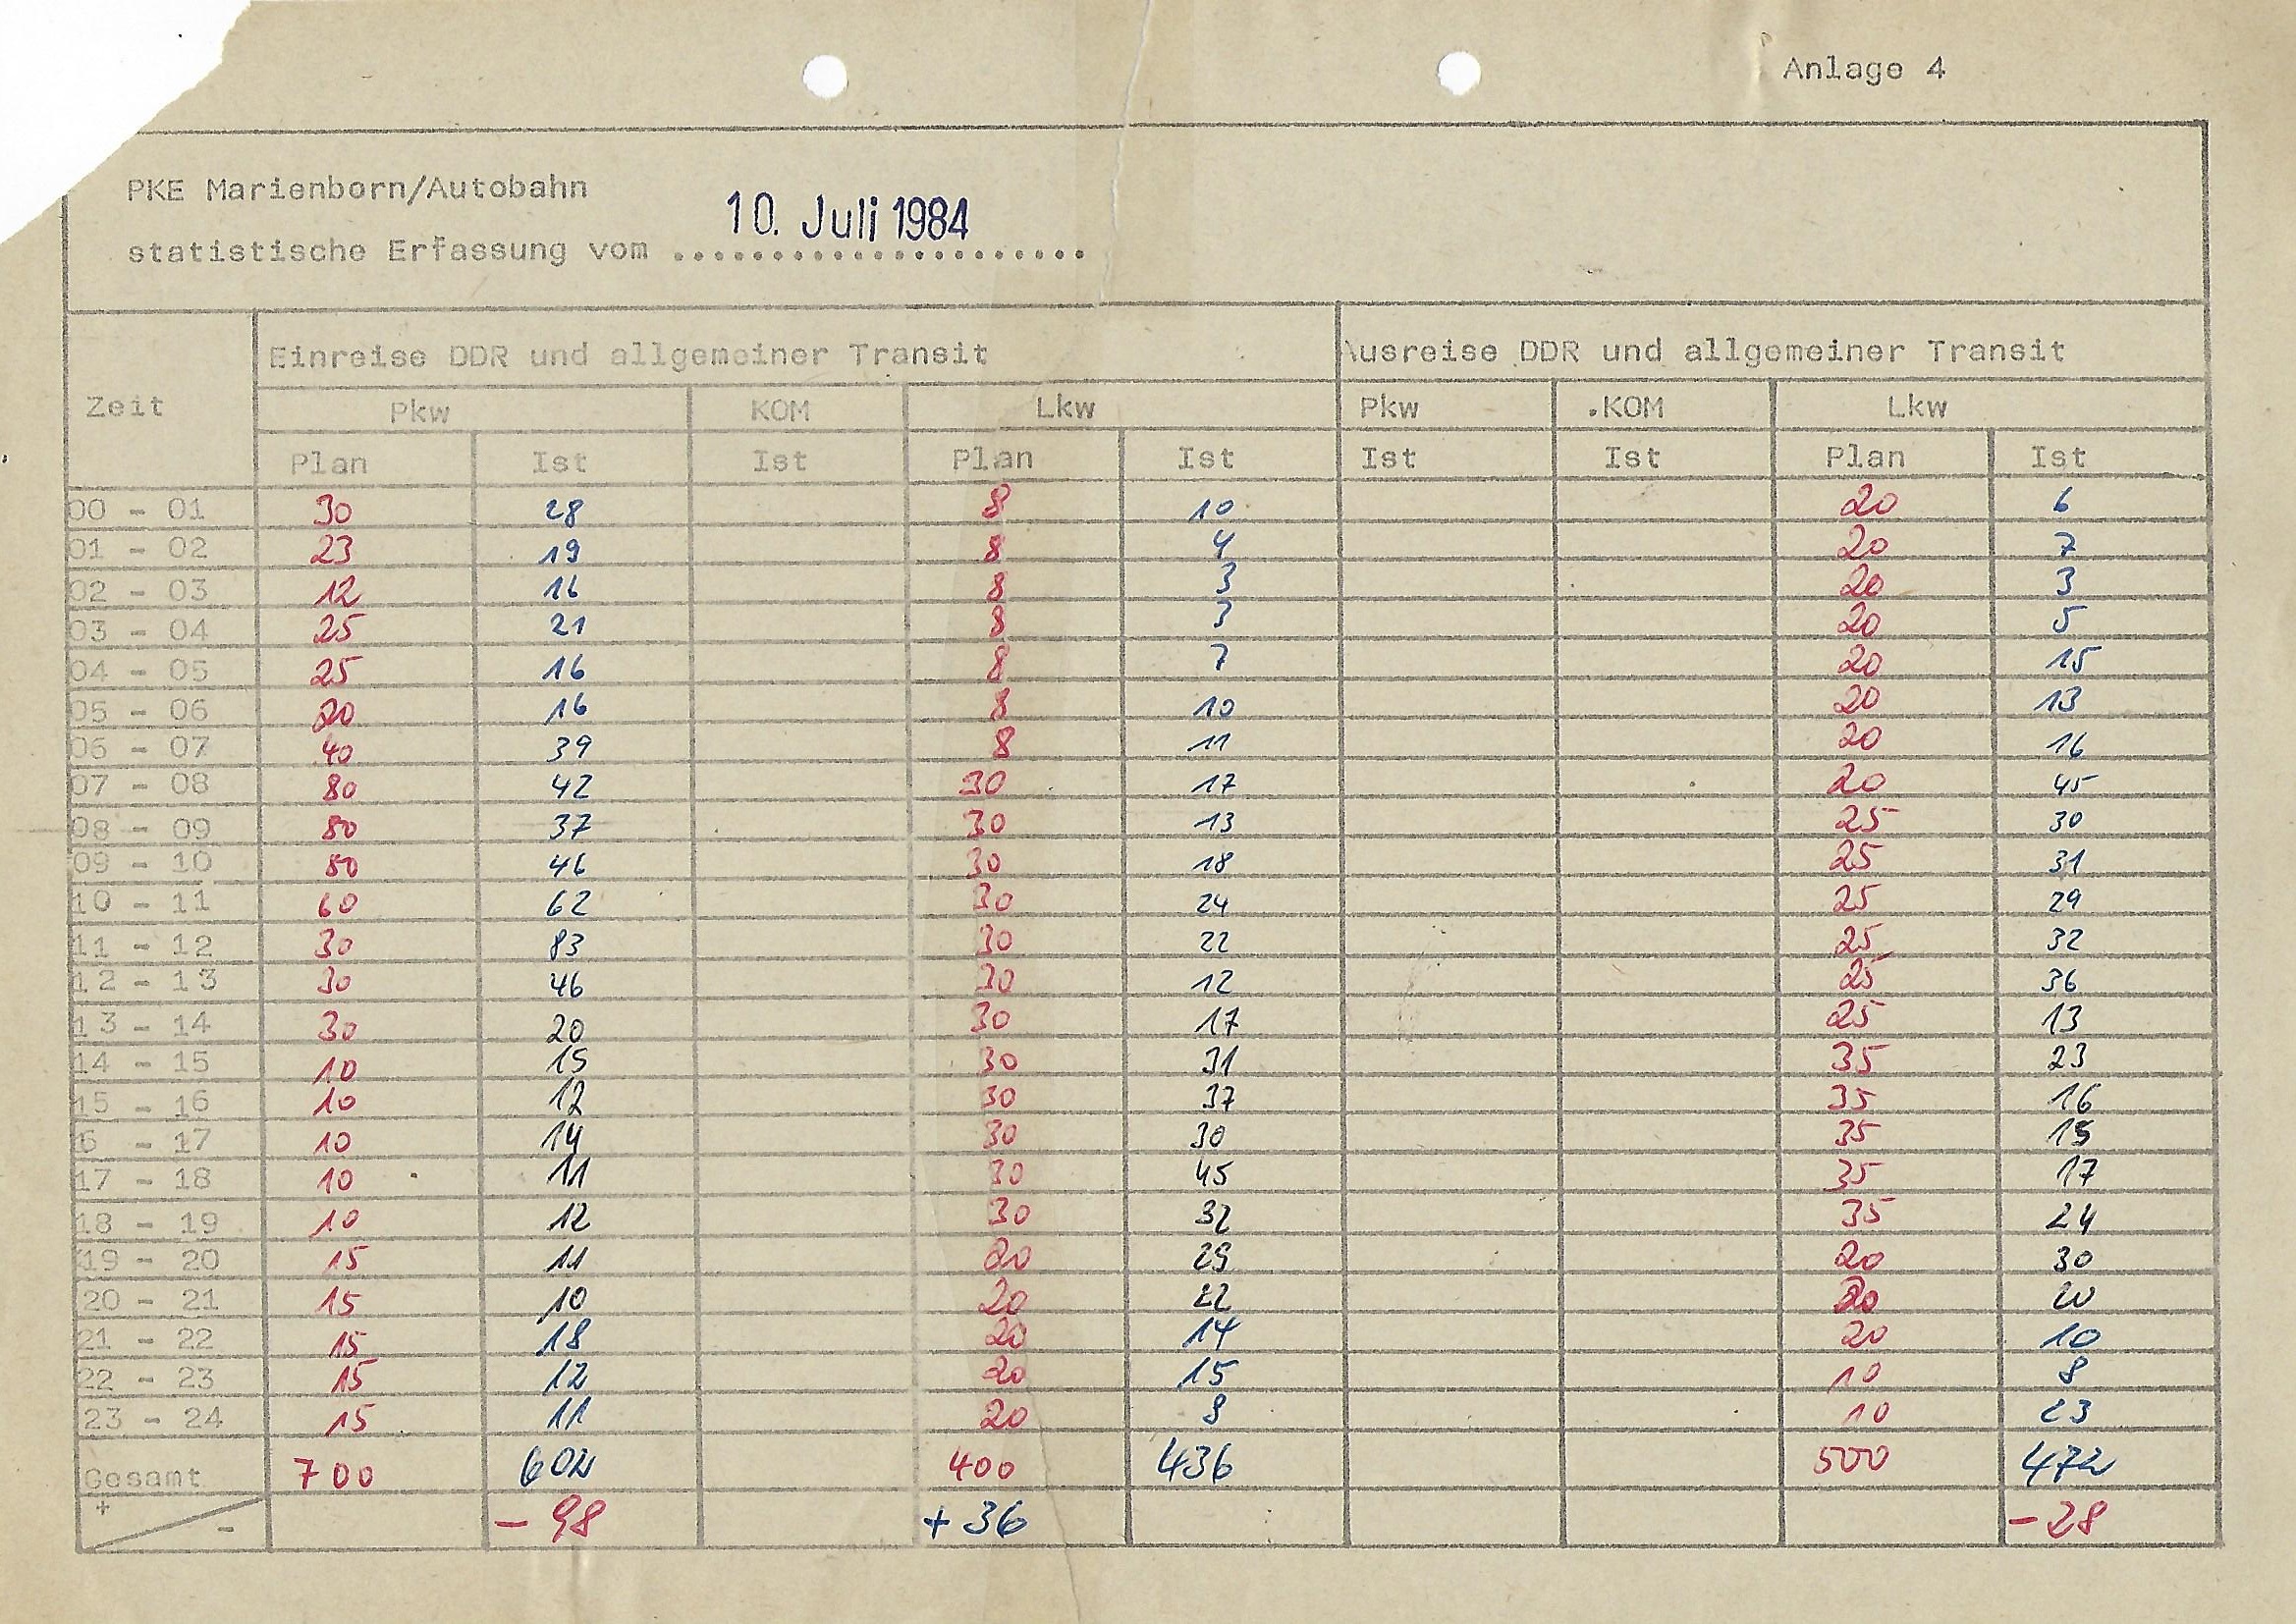 Anlage 4
PKE Marienborn/Autobahn
statistische Erfassung vom 10. Juli 1984
Zeit Einreise DDR und allgemeiner Transit Ausreise DDR und allgemeiner Transit
Pkw KOM Lkw Pkw .KOM Lkw
Plan Ist Ist Plan Ist Ist Ist Plan Ist
00 - 01 30 28 8 10 20 6
01 - 02 23 19 8 4 20 7
02 - 03 12 16 8 3 20 3
03 - 04 25 21 8 3 20 5
04 - 05 25 16 8 7 20 15
05 - 06 20 16 8 10 20 13
06 - 07 40 39 8 11 20 16
07 - 08 80 42 30 17 20 45
08 - 09 80 37 30 13 25 30
09 - 10 80 46 30 18 25 31
10 - 11 60 62 30 24 25 29
11 - 12 30 83 30 22 25 32
12 - 13 30 46 30 12 25 36
13 - 14 30 20 30 17 25 13
14 - 15 10 15 30 31 35 23
15 - 16 10 12 30 37 35 16
6 - 17 10 14 30 30 35 15
17 - 18 10 11 30 45 35 17
18 - 19 10 12 30 32 35 24
19 - 20 15 11 20 29 20 30
20 - 21 15 10 20 22 20 20
21 - 22 15 18 20 14 20 10
22 - 23 15 12 20 15 10 8
23 - 24 15 11 20 9 10 23
Gesamt 700 602 400 436 500 472
+ - - 98 + 36 - 28